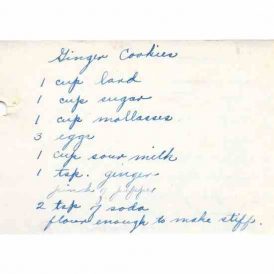 Ginger Cookies
1 cup lard
1 cup sugar
1 cup mollasses
3 eggs
1 cup sour milk
1 tsp. ginger
pinch of pepper
2 tsp of soda
flour enough to make stiff.